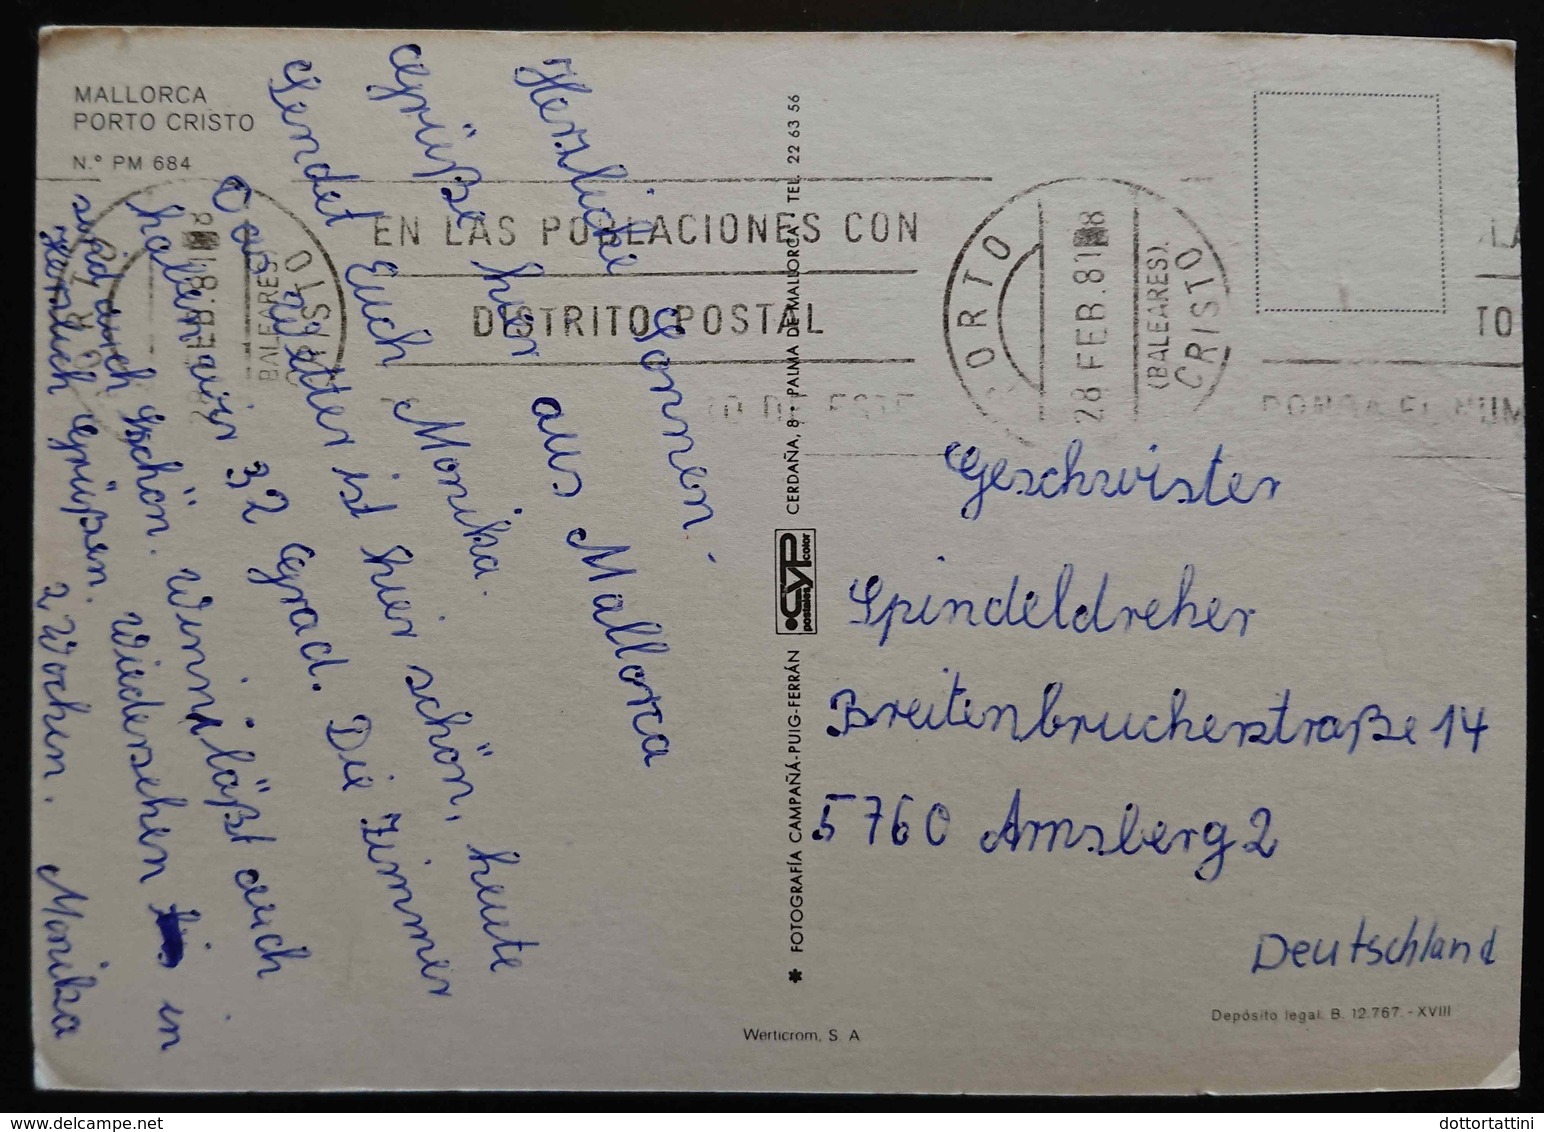 MALLORCA
PORTO CRISTO
N.º PM 684
Herzliche Sonnen-
Grüße hier aus Mallorca
Sendet Euch Monika.
Das Wetter ist hier schön, heute
haben wir 32 Grad. Die Zimmer
sind auch schön. Winni läßt auch
herzlich Grüßen. Wiedersehen in
2 Wochen. Monika
EN LAS POBLACIONES CON
DISTRITO POSTAL
PORTO
CRISTO
(BALEARES)
28 FEB. 81
PORTO
CRISTO
(BALEARES).
28 FEB. 81 8
TO
✱ FOTOGRAFÍA CAMPAÑÁ-PUIG-FERRÁN
CYP
postales color
CERDAÑA, 8 - PALMA DE MALLORCA - TEL. 22 63 56
Geschwister
Spindeldreher
Breitenbrucherstraße 14
5760 Arnsberg 2
Deutschland
Depósito legal. B. 12.767.-XVIII
Werticrom, S. A
dottortattini